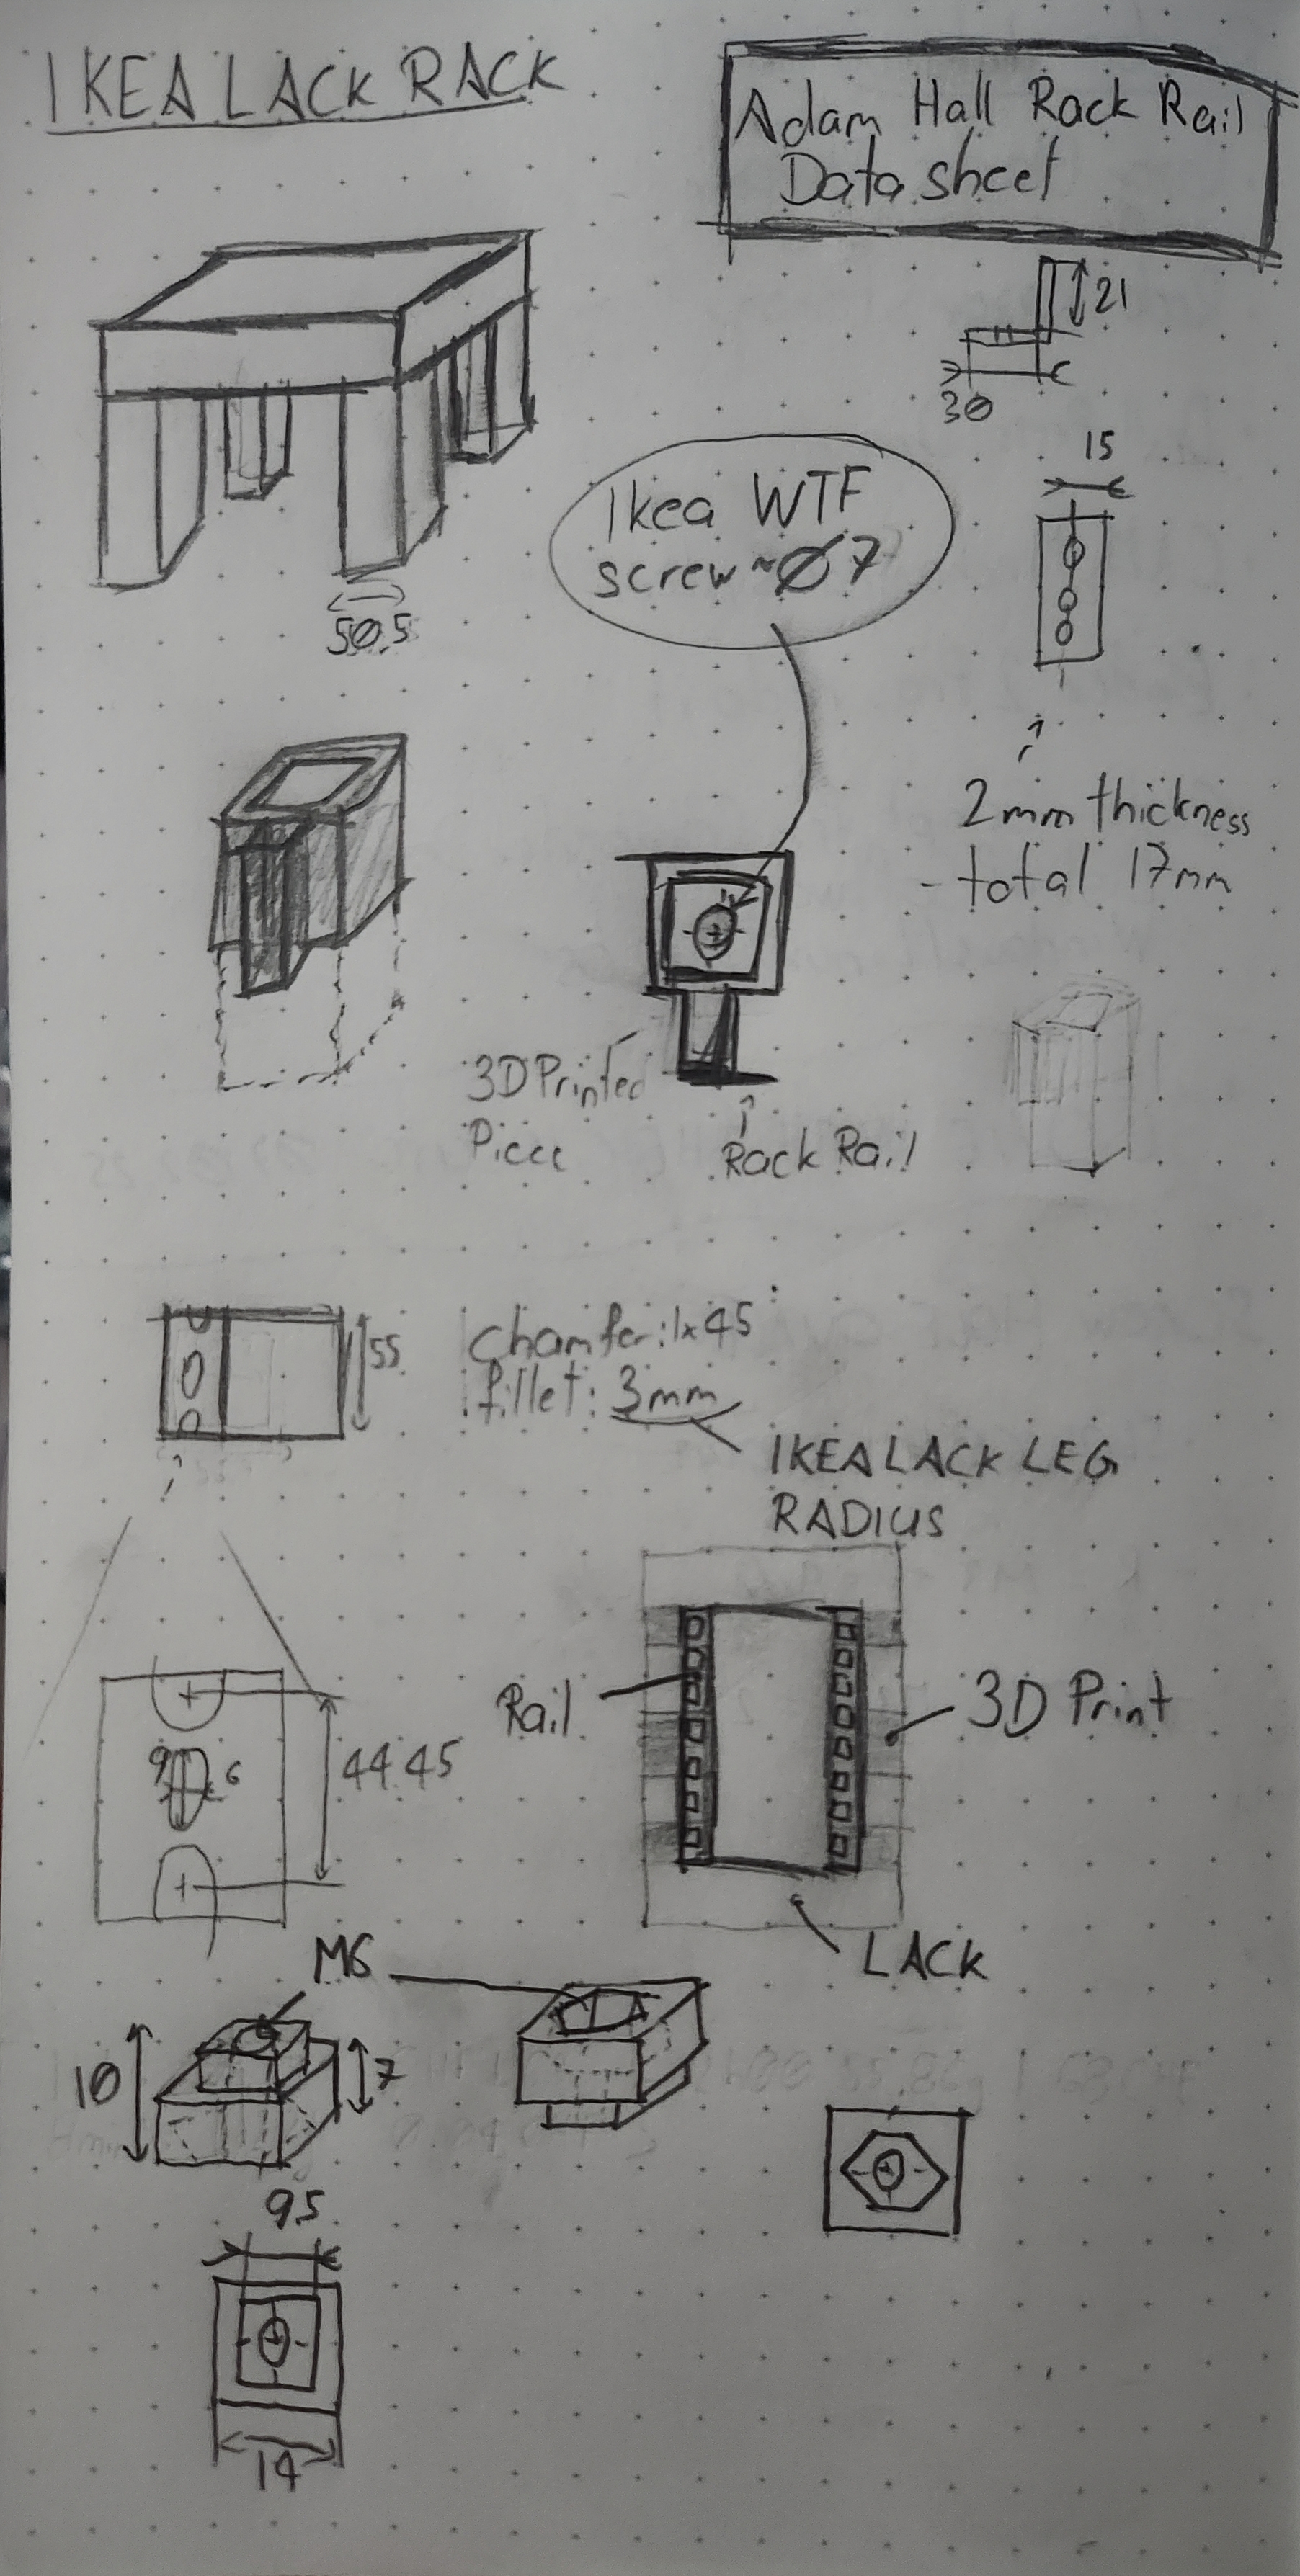 IKEA LACK RACK
Adam Hall Rack Rail
Data sheet
21
30
15
Ikea WTF
screw ~Ø7
50.5
2mm thickness
- total 17mm
3D Printed
Piece
Rack Rail
55
Chamfer: 1x45
fillet: 3mm
IKEA LACK LEG
RADIUS
Rail
3D Print
9
6
44.45
LACK
M6
10
7
95
14